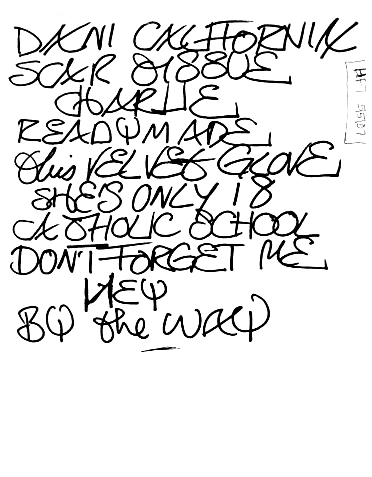 DANI CALIFORNIA
SCAR TISSUE
CHARLIE
READYMADE
this VELVET GLOVE
SHE'S ONLY 18
CATHOLIC SCHOOL
DON'T FORGET ME
HEY
BY the WAY